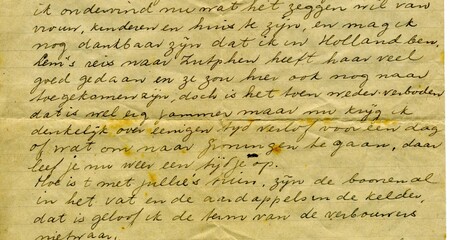 ik ondervind nu wat het zeggen wil van
vrouw, kinderen en huis te zijn, en mag ik
nog dankbaar zijn dat ik in Holland ben.
reis naar Zutphen heeft haar veel
goed gedaan en ze zou hier ook nog naar
toegekomen zijn, doch is het toen weder verboden
dat is wel erg jammer maar nu krijg ik
denkelijk over eenigen tijd verlof voor een dag
of wat om naar Groningen te gaan, daar
leef je nu weer een tijdje op.
Hoe is 't met jullie's tuin, zijn de boonen al
in het vat en de aardappels in de kelder,
dat is geloof ik de term van de verbouwers
nietwaar.